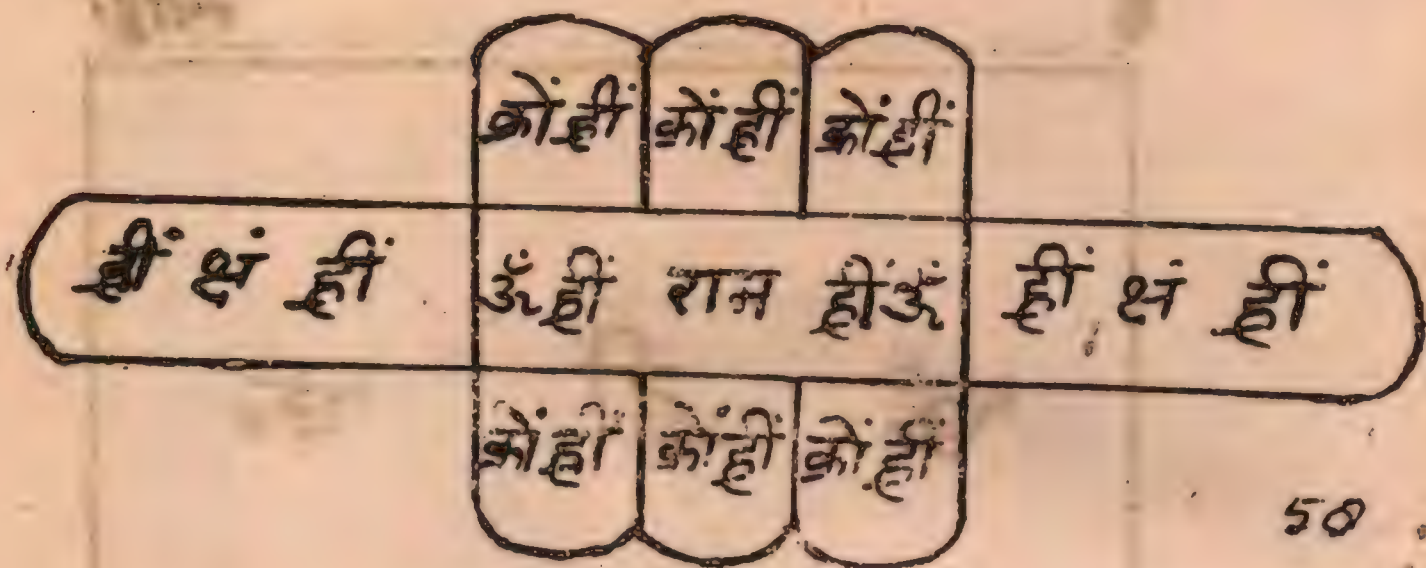 क्रों ह्रीं क्रों ह्रीं क्रों ह्रीं
ह्रीं क्षं ह्रीं ॐ ह्रीं राम ह्रीं ॐ ह्रीं क्षं ह्रीं
क्रों ह्रीं क्रों ह्रीं क्रों ह्रीं
50